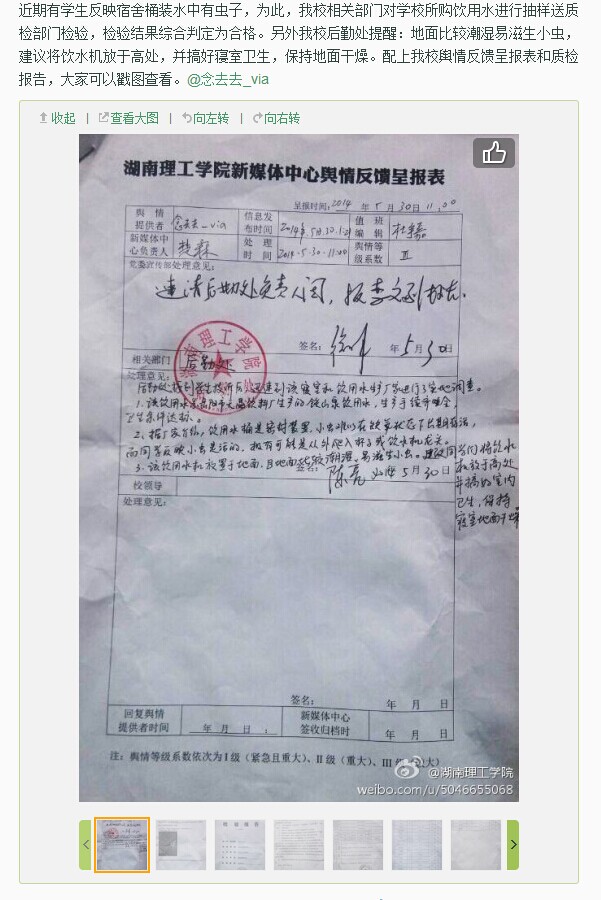 近期有学生反映宿舍桶装水中有虫子，为此，我校相关部门对学校所购饮用水进行抽样送质
检部门检验，检验结果综合判定为合格。另外我校后勤处提醒：地面比较潮湿易滋生小虫，
建议将饮水机放于高处，并搞好寝室卫生，保持地面干燥。配上我校舆情反馈呈报表和质检
报告，大家可以戳图查看。@念去去_via
收起 | 查看大图 | 向左转 | 向右转
湖南理工学院新媒体中心舆情反馈呈报表
呈报时间：2014 年 5 月 30 日 11:00
舆情提供者 念去去_via 信息发布时间 2014年5月30日 值班编辑
新媒体中心负责人 处理时间 2014-5-30-11:00 舆情等级系数 Ⅲ
党委宣传部处理意见：
速请后勤处负责人阅，
签名： 年 5 月 30 日
相关部门 后勤处
处理意见：
后勤处接到学生投诉后迅速到该寝室和饮用水生产厂家进行了实地调查。
1. 该饮用水 生产的 山泉饮用水，生产手续齐全，
卫生条件达标。
2. 据厂家介绍，饮用水桶是密封装置，小虫难以在缺氧状态下长期存活，
而同学反映小虫是活的，极有可能是从外爬入杯子或饮水机龙头。
3. 该饮用水机放置于地面，且地面比较潮湿，易滋生小虫。建议同学们将饮水
机放于高处
并搞好室内
卫生，保持
寝室地面干燥
签名： 陈亮 5 月 30 日
校领导
处理意见：
签名： 年 月 日
回复舆情提供者时间 年 月 日 新媒体中心签收归档时 年 月 日
注：舆情等级系数依次为 I 级（紧急且重大）、II 级（重大）、III 级
@湖南理工学院
weibo.com/u/5046655068